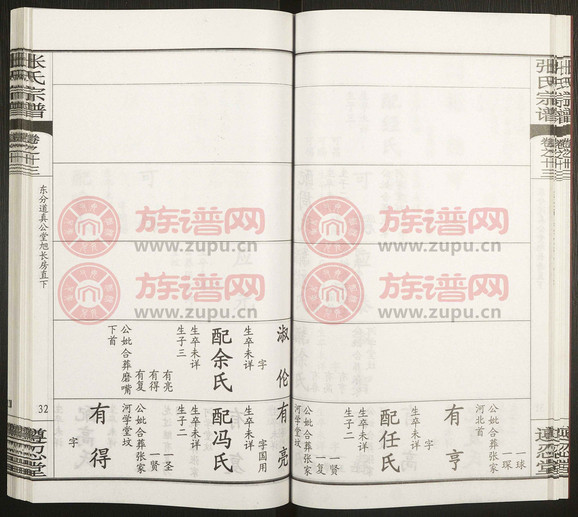 张氏宗谱
卷之廿三
遵忍堂
一球
一琛
公妣合葬张家
河北首
有亨
字
配任氏
生卒未详
生子二
一贤
一复
公妣合葬张家
河学堂坟
张氏宗谱
卷之廿三
东分道真公堂旭长房直下
32
遵忍堂
淑伦
字
生卒未详
配余氏
生卒未详
生子三
有亮
有得
有复
公妣合葬磨嘴
下首
有亮
字国用
生卒未详
配冯氏
生卒未详
生子二
一圣
一贤
公妣合葬张家
河学堂坟
有得
字
族谱网
www.zupu.cn
族谱网
www.zupu.cn
族谱网
www.zupu.cn
族谱网
www.zupu.cn